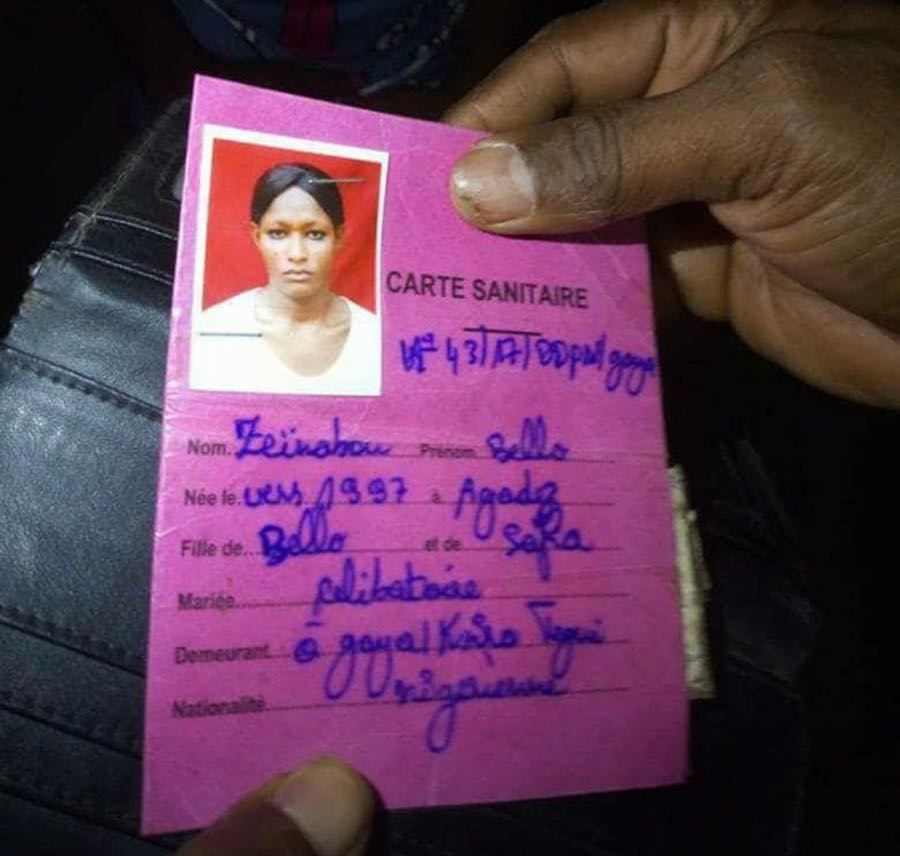 CARTE SANITAIRE
N° 43/17/DDPM/gaya
Nom. Zeïnabou Prénom Bello
Née le vers 1997 à Agadez
Fille de Bello et de Safia
Mariée célibataire
Demeurant à gaya/Koira Tegui
Nationalité nigérienne